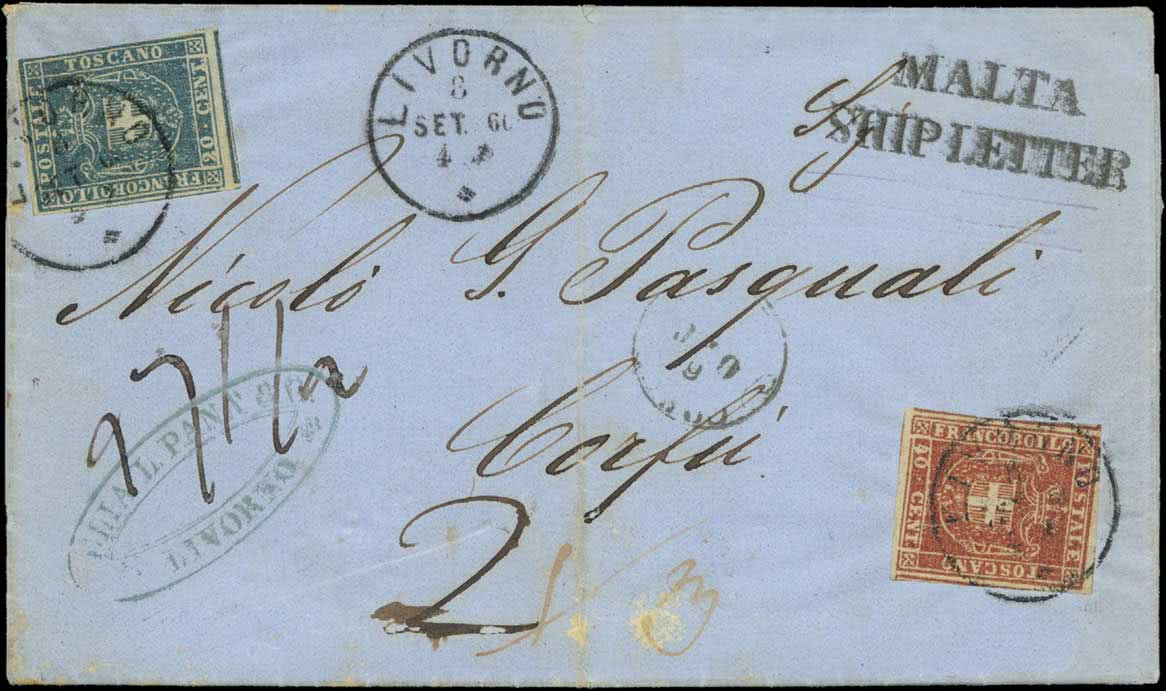 TOSCANO
POSTALE
20 CENT
FRANCOBOLLO
LIVORNO
8
SET. 60
4
MALTA
SHIP LETTER
Sg.
Nicolò G. Pasquali
Corfù
LIVORNO
2
3
FRANCOBOLLO
40 CENT
POSTALE
TOSCANO